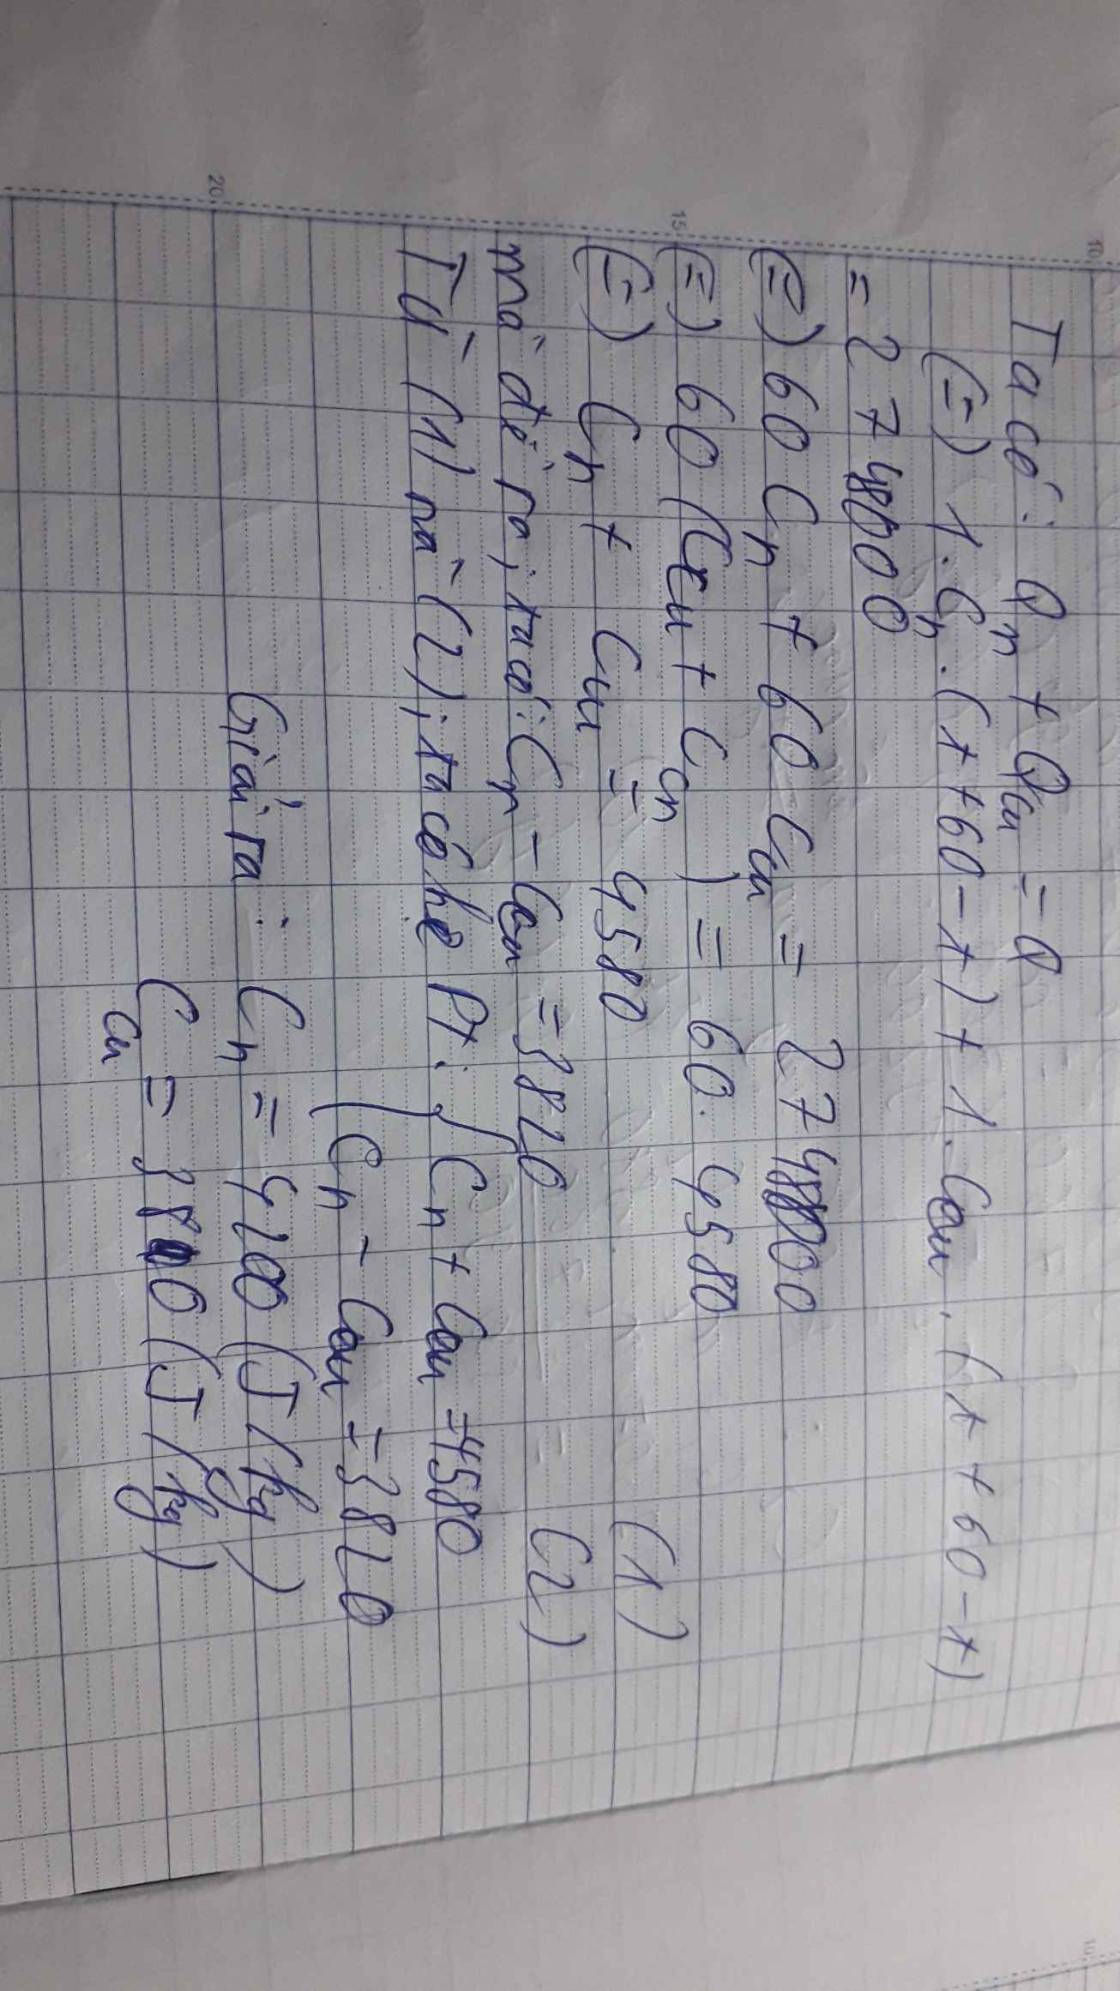 Ta có: Qn + Qcu = Q
(=) 1.Cn.(t+60-t) + 1.Ccu.(t+60-t)
= 274800
(=) 60Cn + 60Ccu = 274800
(=) 60(Ccu + Cn) = 60.4580
(=) Cn + Ccu = 4580 (1)
mà đề ra, ta có: Cn - Ccu = 3820 (2)
Từ (1) và (2), ta có hệ Pt: { Cn + Ccu = 4580
Cn - Ccu = 3820
Giải ra: Cn = 4200 (J/kg)
Ccu = 380 (J/kg)
10
15
20
10